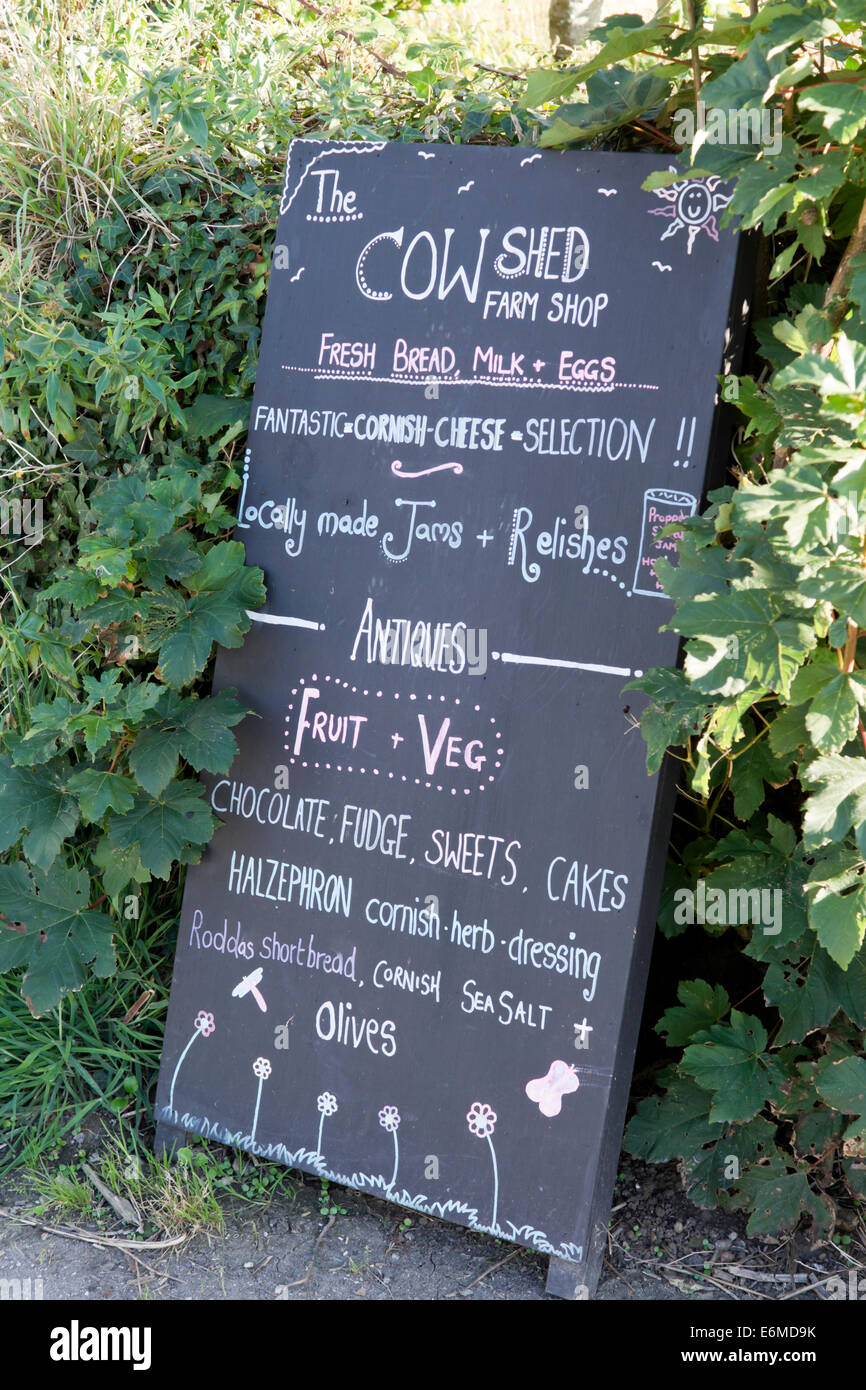 The
COW SHED
FARM SHOP
FRESH BREAD, MILK + EGGS
FANTASTIC = CORNISH - CHEESE = SELECTION !!
Locally made Jams + Relishes
ANTIQUES
FRUIT + VEG
CHOCOLATE, FUDGE, SWEETS, CAKES
HALZEPHRON cornish · herb · dressing
Roddas shortbread, CORNISH SEA SALT +
Olives
alamy
www.alamy.com
E6MD9K